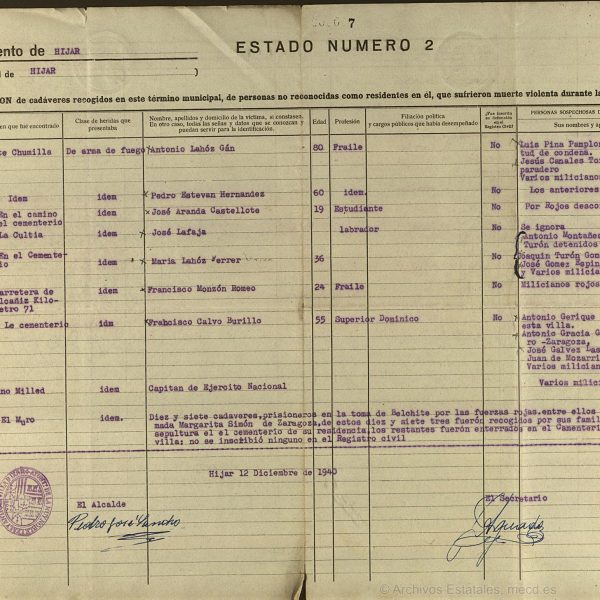 7
ento de HIJAR
ESTADO NUMERO 2
l de HIJAR )
ON de cadáveres recogidos en este término municipal, de personas no reconocidas como residentes en el, que sufrieron muerte violenta durante la
en que fué encontrado
Clase de heridas que presentaba
Nombre, apellidos y domicilio de la víctima, si constasen. En otro caso, todas las señas y datos que se conozcan y puedan servir para la identificación.
Edad
Profesión
Filiación política y cargos públicos que haya desempeñado
¿Fué inscrita su defunción en el Registro Civil?
PERSONAS SOSPECHOSAS D
Sus nombres y ap
te Chumilla De arma de fuego Antonio Lahóz Gán 80 Fraile No Luis Pina Pamplon
tud de condena.
Jesús Canales To
paradero
Varios miliciano
Idem idem Pedro Estevan Hernandez 60 idem. No Los anteriores
En el camino
el cementerio idem José Aranda Castellote 19 Estudiante No Por Rojos desco
La Cultia idem José Lafaja labrador No Se ignora
Antonio Montañes
Turón detenidos
En el Cemente-
io idem Maria Lahóz Ferrer 36 No Joaquin Turón Gom
José Gomez Espin
y Varios milicia
arretera de
lcañiz Kilo-
etro 71 idem Francisco Monzón Romeo 24 Fraile No Milicianos rojos
Le cementerio idm Frahcisco Calvo Burillo 55 Superior Dominico No Antonio Gerique
esta villa.
Antonio Gracia G
ro -Zaragoza,
José Galvez Las
Juan de Mozarri
Varios milician
no Milled idem Capitan de Ejercito Nacional Varios milic
El Muro idem. Diez y siete cadaveres,prisioneros en la toma de Belchite por las fuerzas rojas,entre ellos
mada Margarita Simón de Zaragoza,de estos diez y siete tres fuerón recogidos por sus famil
sepultura el el cementerio de su residencia,los restantes fuerón enterrados en el Cementeri
villa: no se inscribió ninguno en el Registro civil
Hijar 12 Diciembre de 1940
El Alcalde
El Secretario
Pedro José Sancho
© Archivos Estatales, mecd.es